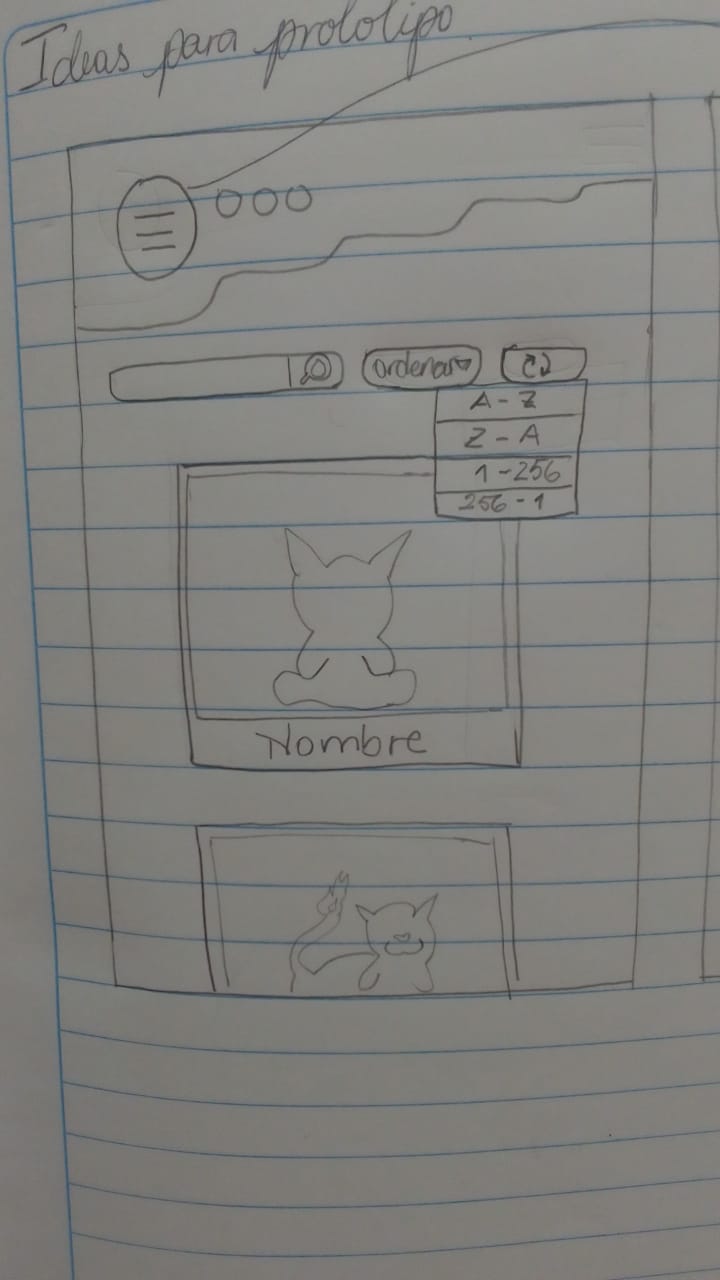 Ideas para prototipo.
ordenar
A - Z
Z - A
1 - 256
256 - 1
Nombre